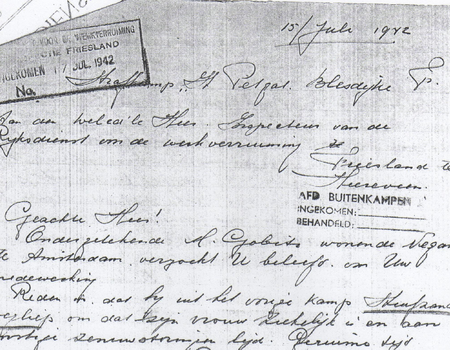 15/Juli 1942
WERKVERRUIMING
FRIESLAND
17 JUL. 1942
No.
Strafkamp "It Petgat Blesdijke
Aan den weled'le Heer Inspecteur van de
Rijksdienst om de werkverruiming
Friesland te
Heereveen
AFD BUITENKAMPEN
INGEKOMEN:
BEHANDELD:
Geachte Heer!
Ondergetekende M. Gobits wonende
te Amsterdam verzoekt U beleefd om Uw
medewerking
Reden is dat hij uit het vorige kamp
om dat zijn vrouw ziekelijk is en aan
zenuwstoringen lijdt. Geruime tijd